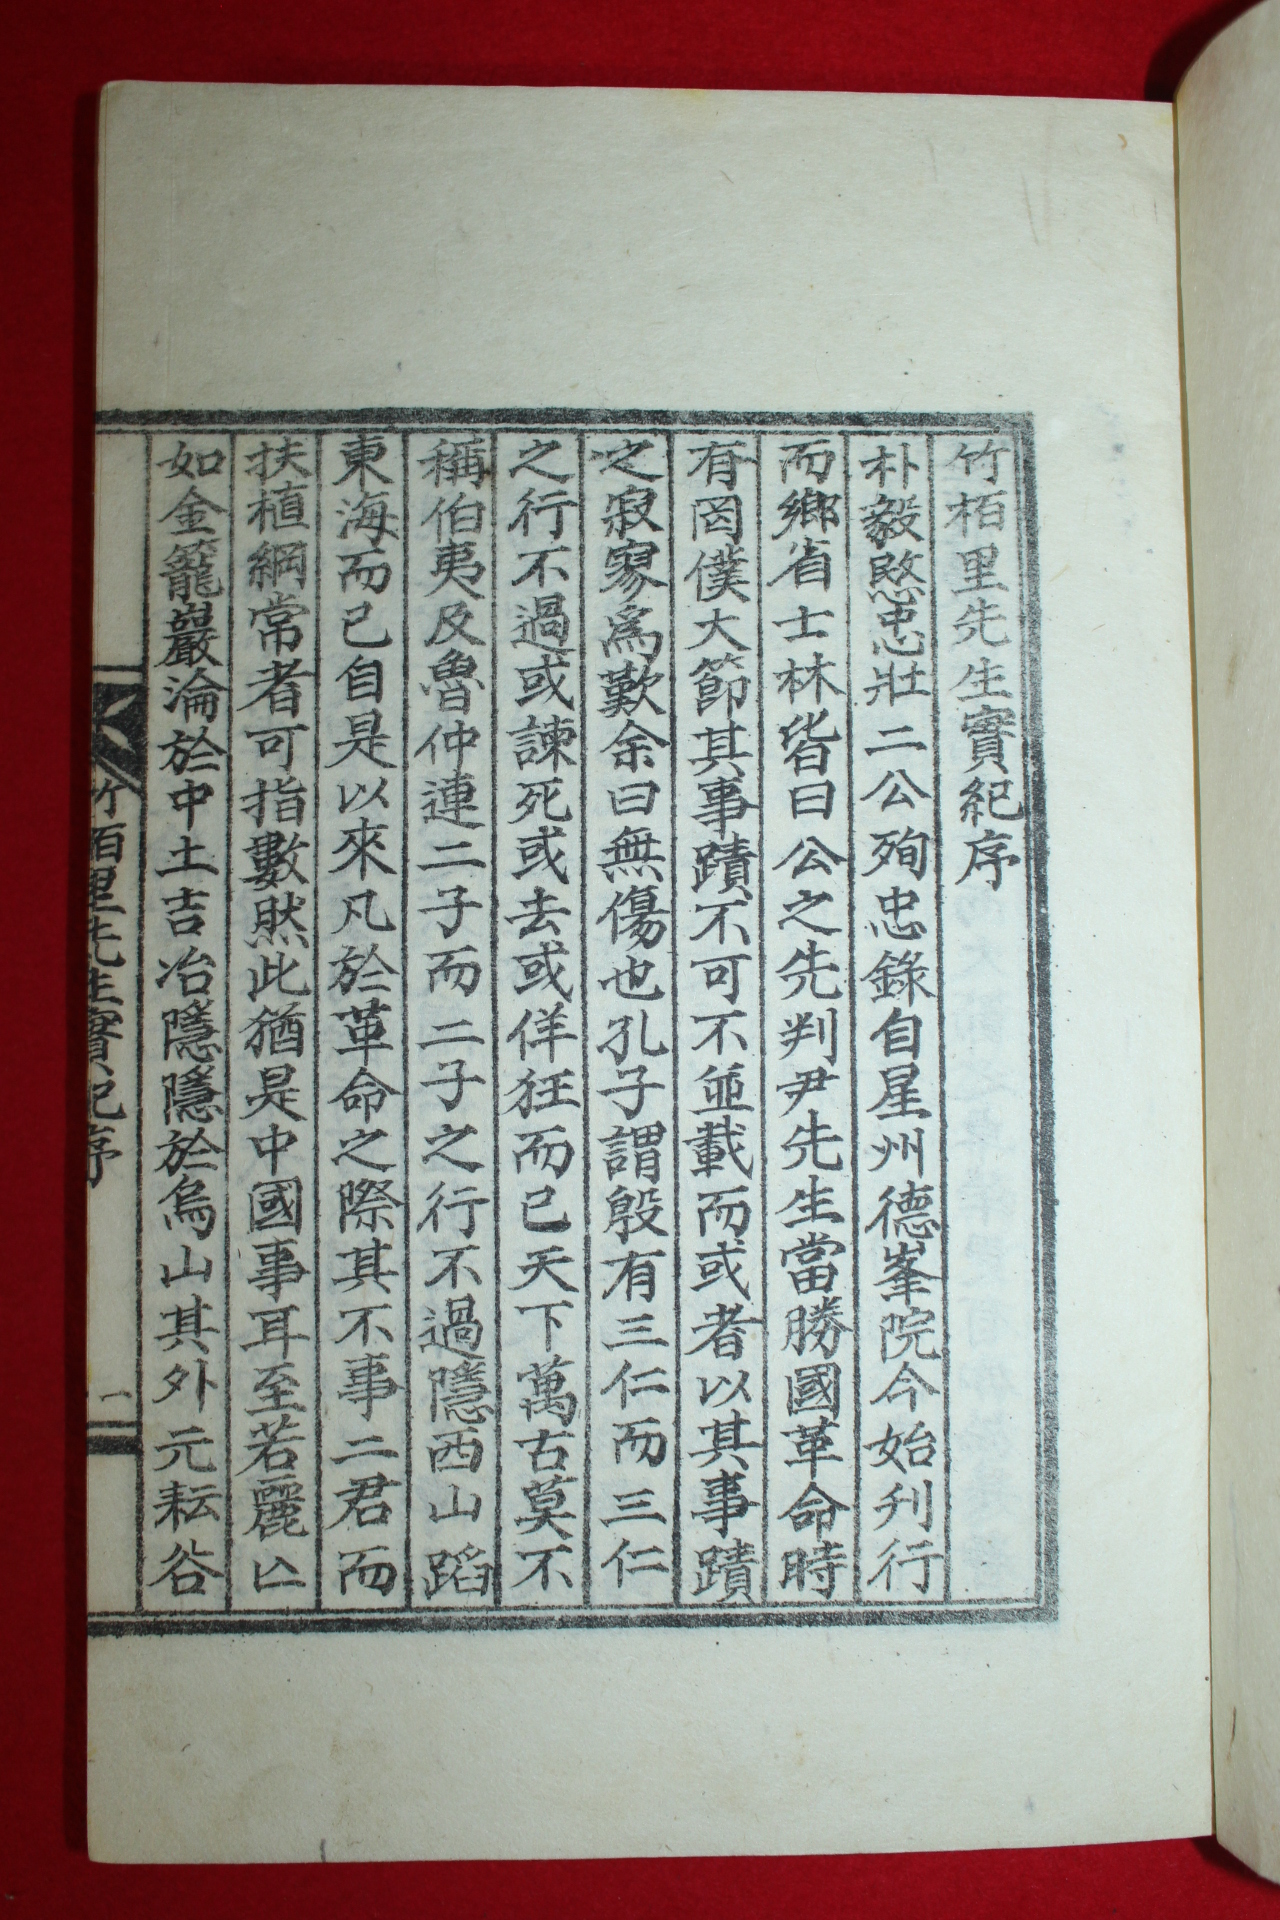 竹栢里先生實紀序
朴毅愍忠壯二公殉忠錄自星州德峯院今始刋行
而鄉省士林皆曰公之先先判尹先生當勝國革命時
有罔僕大節其事蹟不可不並載而或者以其事蹟
之寂寥爲歎余曰無傷也孔子謂殷有三仁而三仁
之行不過或諫死或去或佯狂而已天下萬古莫不
稱伯夷及魯仲連二子而二子之行不過隱西山蹈
東海而已自是以來凡於革命之際其不事二君而
扶植綱常者可指數然此猶是中國事耳至若麗亾
如金籠巖淪於中土吉冶隱隱於烏山其外元耘谷
竹栢里先生實紀序
一